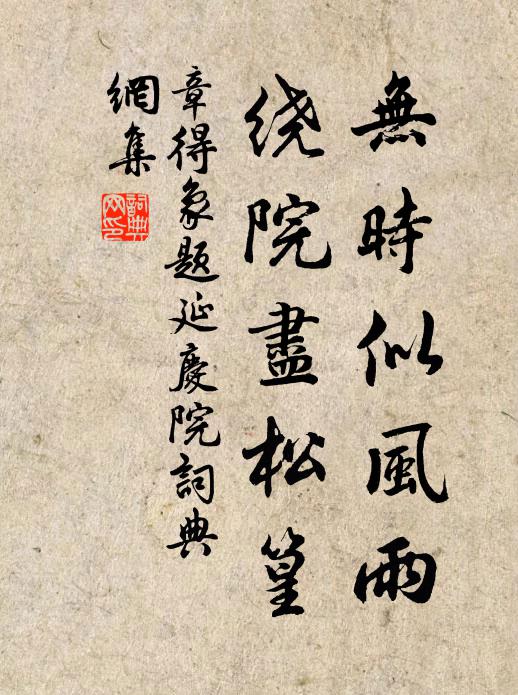 無時似風雨
绕院盡松篁
章得象題延慶院詞典
網集
詞典
网印